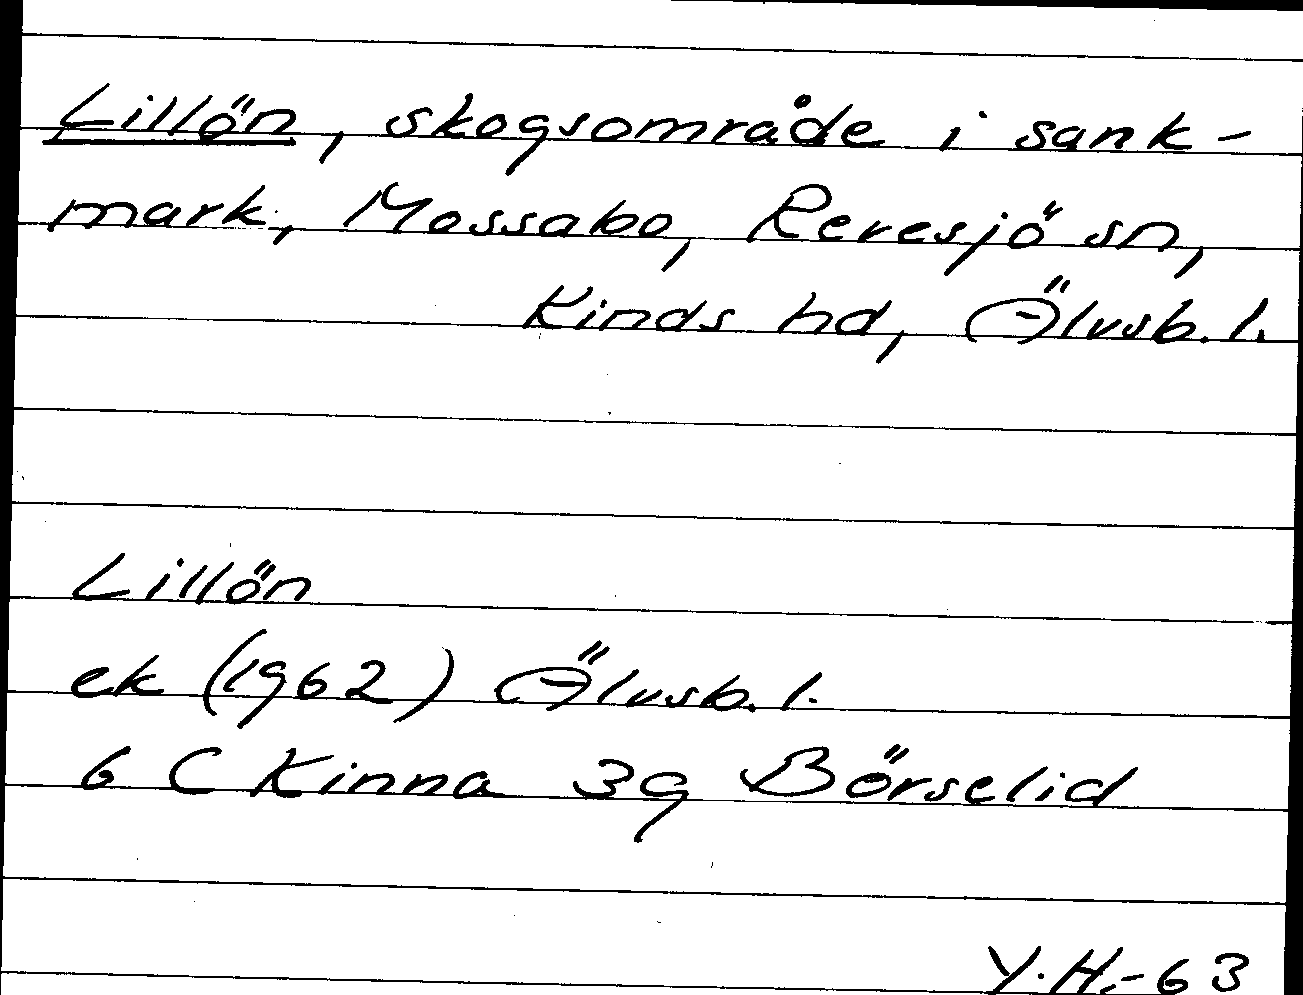 Lillön, skogsområde i sank-
mark, Mossabo, Revesjö sn,
Kinds hd, Älvsb. l.
Lillön
ek (1962) Älvsb. l.
6 C Kinna 3g Börselid
Y. H. -63